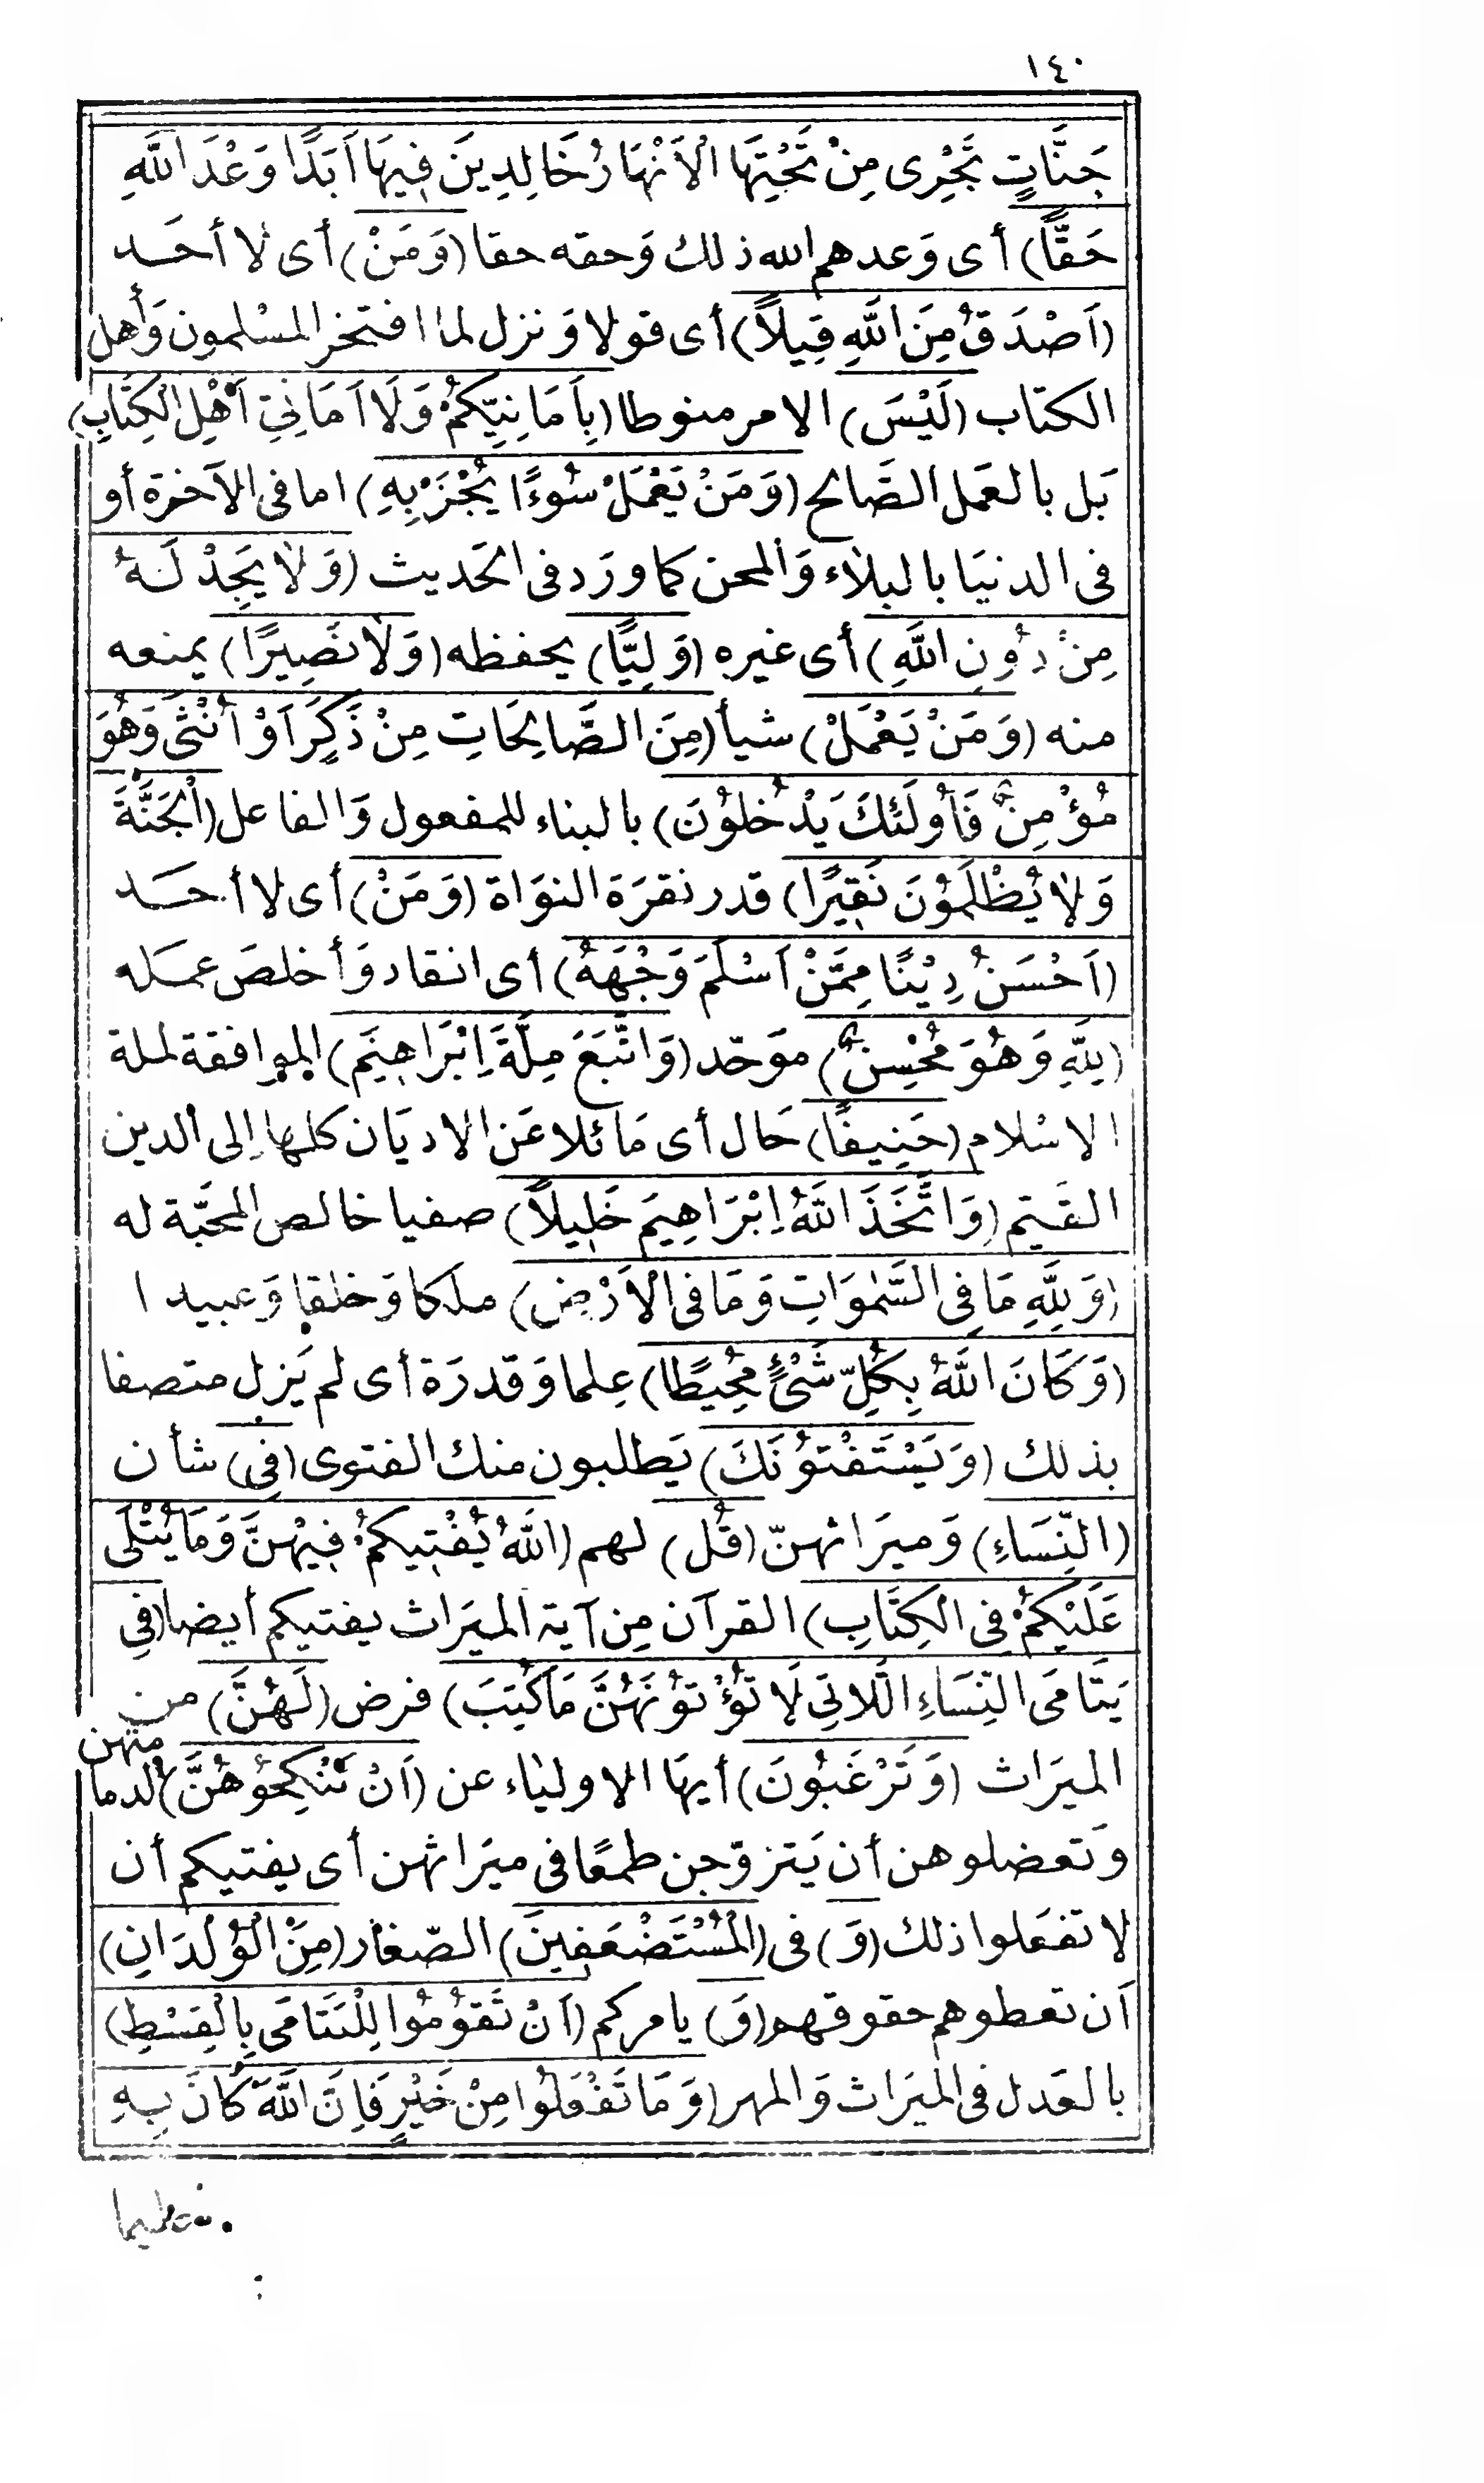 ١٤٠
جَنَّاتٍ تَجْرِى مِنْ تَحْتِهَا الْاَنْهَارُ خَالِدِينَ فِيهَا اَبَدًا وَعْدَ اللَّهِ
حَقًّا) أى وَعدهم الله ذلك وَحقه حقا (وَمَنْ) أى لا أحَد
(اَصْدَقُ مِنَ اللَّهِ قِيلاً) أى قولا وَنزل لما افتخر المسْلمون وَأهل
الكتاب (لَيْسَ) الامر منوطا (بِاَمَانِيِّكُمْ وَلَا اَمَانِيِّ اَهْلِ الْكِتَابِ)
بَل بالعَمل الصَّالح (وَمَنْ يَعْمَلْ سُوءًا يُجْزَ بِهِ) اما فى الآخرة أو
فى الدنيَا بالبلاء وَالمحن كما ورَد فى الحَديث (وَلَا يَجِدْ لَهُ
مِنْ دُونِ اللَّهِ) أى غيره (وَلِيًّا) يحفظه (وَلَا نَصِيرًا) يمنعه
منه (وَمَنْ يَعْمَلْ) شيأ (مِنَ الصَّالِحَاتِ مِنْ ذَكَرٍ اَوْ اُنْثَى وَهُوَ
مُؤْمِنٌ فَاُولَئِكَ يَدْخُلُونَ) بالبناء للمفعول وَالفاعل (الْجَنَّةَ
وَلَا يُظْلَمُونَ نَقِيرًا) قدر نقرَة النوَاة (وَمَنْ) أى لا أحَد
(اَحْسَنُ دِيْنًا مِمَّنْ اَسْلَمَ وَجْهَهُ) أى انقاد وَأخلصَ عمَله
(لِلَّهِ وَهُوَ مُحْسِنٌ) موَحّد (وَاتَّبَعَ مِلَّةَ اِبْرَاهِيَم) الموافقة لملة
الاسْلام (حَنِيفًا) حَال أى مَائلا عَن الاديَان كلها إلى الدين
القَيّم (وَاتَّخَذَ اللَّهُ اِبْرَاهِيمَ خَلِيلاً) صفيا خالص المحَبّة له
(وَلِلَّهِ مَا فِى السَّمٰوَاتِ وَمَا فِى الْاَرْضِ) ملكا وَخلقا وَعبيدا
(وَكَانَ اللَّهُ بِكُلِّ شَىْءٍ مُحِيطًا) عِلما وَقدرَة أى لم يَزل متصفا
بذلك (وَيَسْتَفْتُونَكَ) يَطلبون منك الفتوى (فِى) شأن
(النِّسَاءِ) وَميرَاثهنّ (قُل) لهم (اللَّهُ يُفْتِيكُمْ فِيْهِنَّ وَمَا يُتْلَى
عَلَيْكُمْ فِى الْكِتَابِ) القرآن مِن آية الميَرَاث يفتيكم أيضا (فِى
يَتَامَى النِّسَاءِ اللَّاتِى لَا تُؤْتُوْنَهُنَّ مَا كُتِبَ) فرض (لَهُنَّ) من
الميَرَاث (وَتَرْغَبُونَ) أيهَا الاولياء عن (اَنْ تَنْكِحُوْهُنَّ) لدمامتهن
وَتعضلوهن أن يَتزوّجن طمعًا فى ميَراثهن أى يفتيكم أن
لا تفعَلوا ذلك (وَ) فى (الْمُسْتَضْعَفِينَ) الصّغار (مِنَ الْوُلْدَانِ)
اَن تعطوهم حقوقهم (وَ) يامركم (اَنْ تَقُوْمُوا لِلْيَتَامَى بِالْقِسْطِ)
بالعَدل فى الميَرَاث وَالمهر (وَمَا تَفْعَلُوا مِنْ خَيْرٍ فَاِنَّ اللَّهَ كَانَ بِهِ